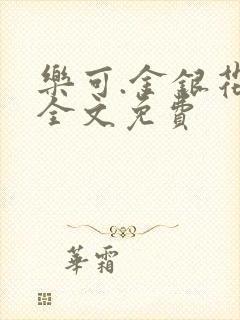 樂可.金銀花
全文免費
華霜